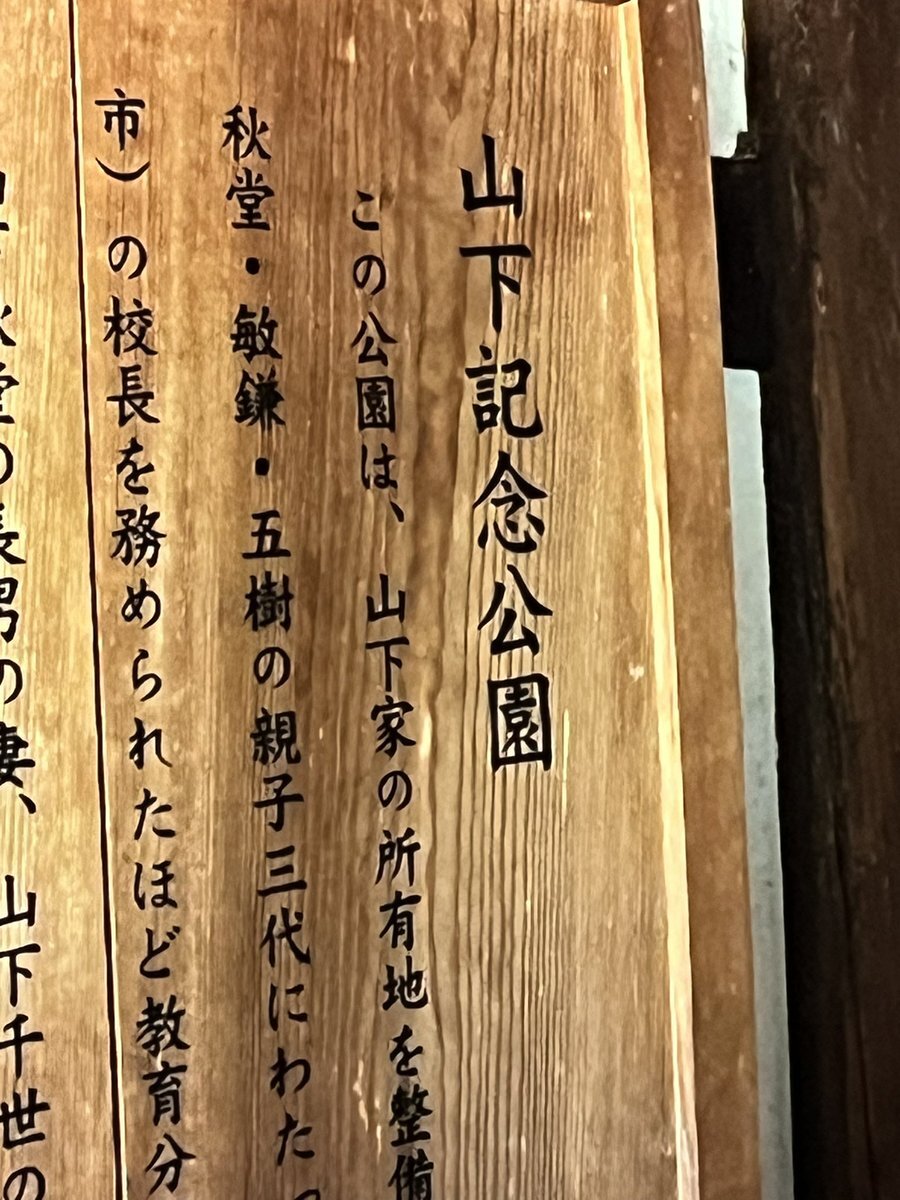 山下記念公園
この公園は、山下家の所有地を整備
秋堂・敏鎌・五樹の親子三代にわたっ
市)の校長を務められたほど教育分
堂の長男の妻、山下千世の